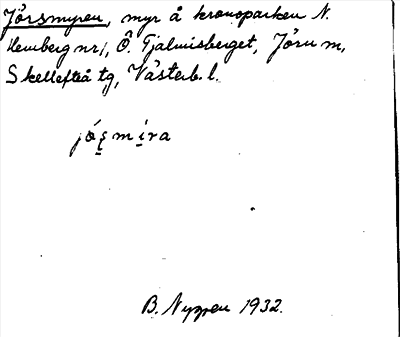 Jörsmyren, myr å kronoparken N.
Hemberg nr 1, Ö. Fjalmisberget, Jörn m,
Skellefteå tg, Västerb. l.
jó̱ʂmi̱ra
B. Nygren 1932.